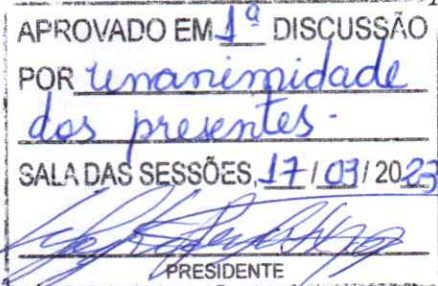 APROVADO EM 1ª DISCUSSÃO
POR unanimidade
dos presentes.
SALA DAS SESSÕES, 17 / 03 / 2023
PRESIDENTE